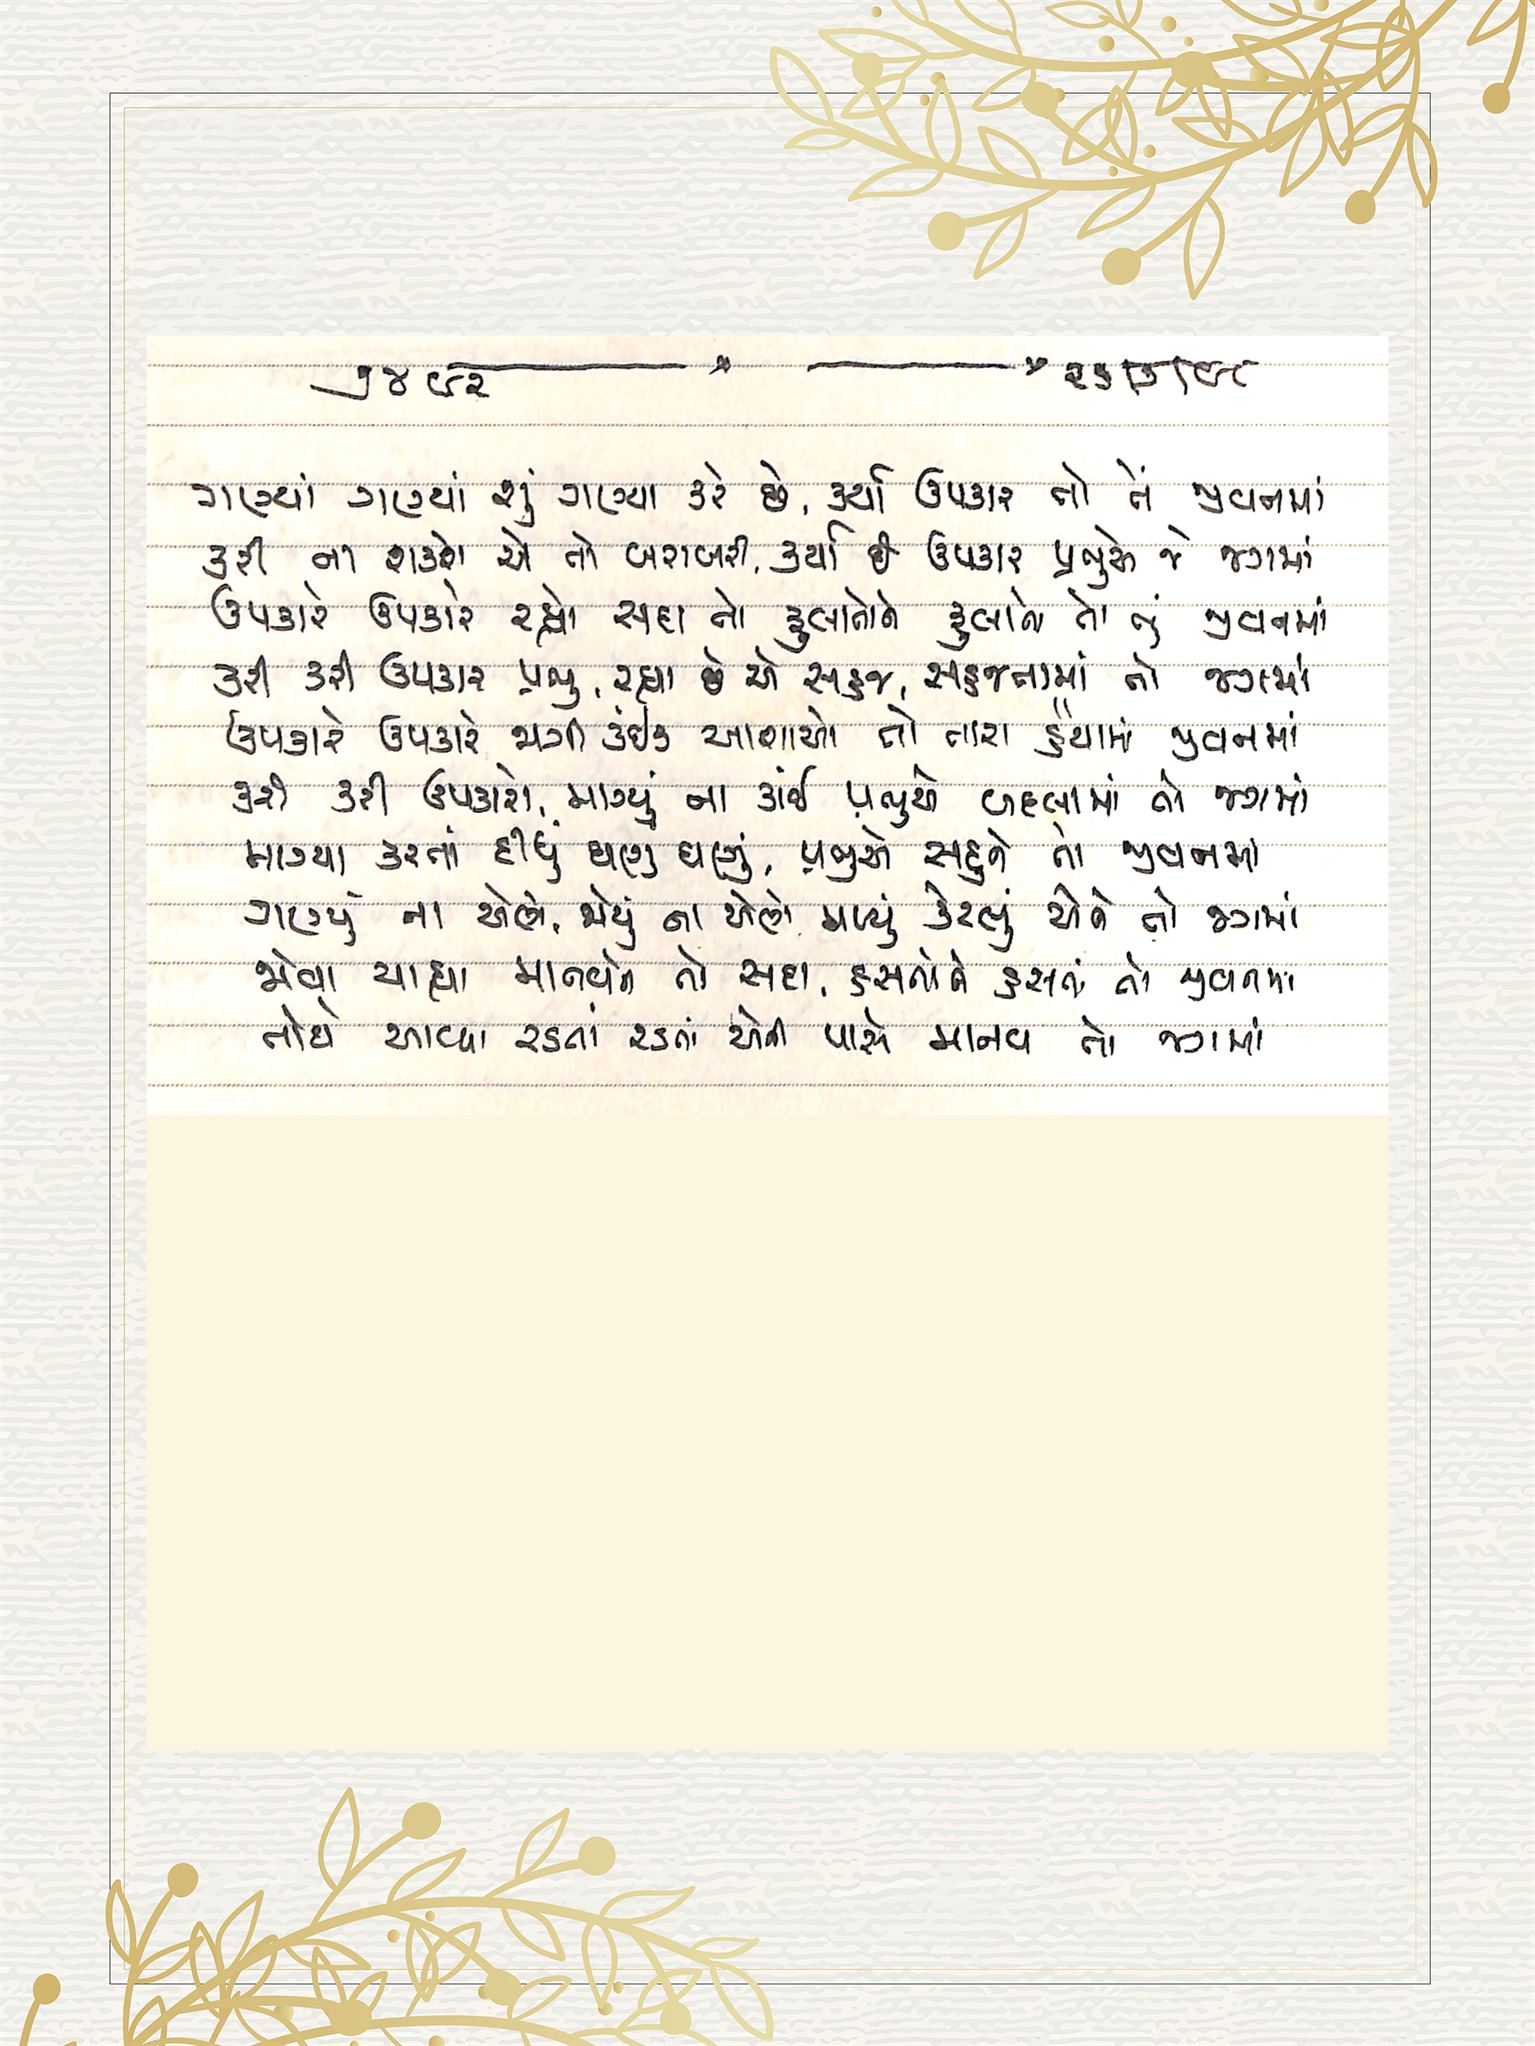 ૧૪૯૨ ૨૬/૬/૯૮
ગણ્યાં ગણ્યાં શું ગણ્યા કરે છે, કર્યા ઉપકાર તો તેં જીવનમાં
કરી ના શકશે એ તો બરાબરી, કર્યા છે ઉપકાર પ્રભુએ જે જગમાં
ઉપકારે ઉપકારે રહ્યો સદા તો ફુલાતોને ફુલાતો તો તું જીવનમાં
કરી કરી ઉપકાર પ્રભુ, રહ્યા છે એ સહજ, સહજતામાં તો જગમાં
ઉપકારે ઉપકારે જાગી કંઈક આશાઓ તો તારા હૈયામાં જીવનમાં
કરી કરી ઉપકારો, માગ્યું ના કાંઈ પ્રભુએ બદલામાં તો જગમાં
માગ્યા કરતાં દીધું ઘણું ઘણું, પ્રભુએ સહુને તો જીવનમાં
ગણ્યું ના એણે, જોયું ના એણે મળ્યું કેટલું એને તો જગમાં
જોવા ચાહ્યા માનવને તો સદા, હસતોને હસતાં તો જીવનમાં
તોયે આવ્યા રડતાં રડતાં એની પાસે માનવ તો જગમાં